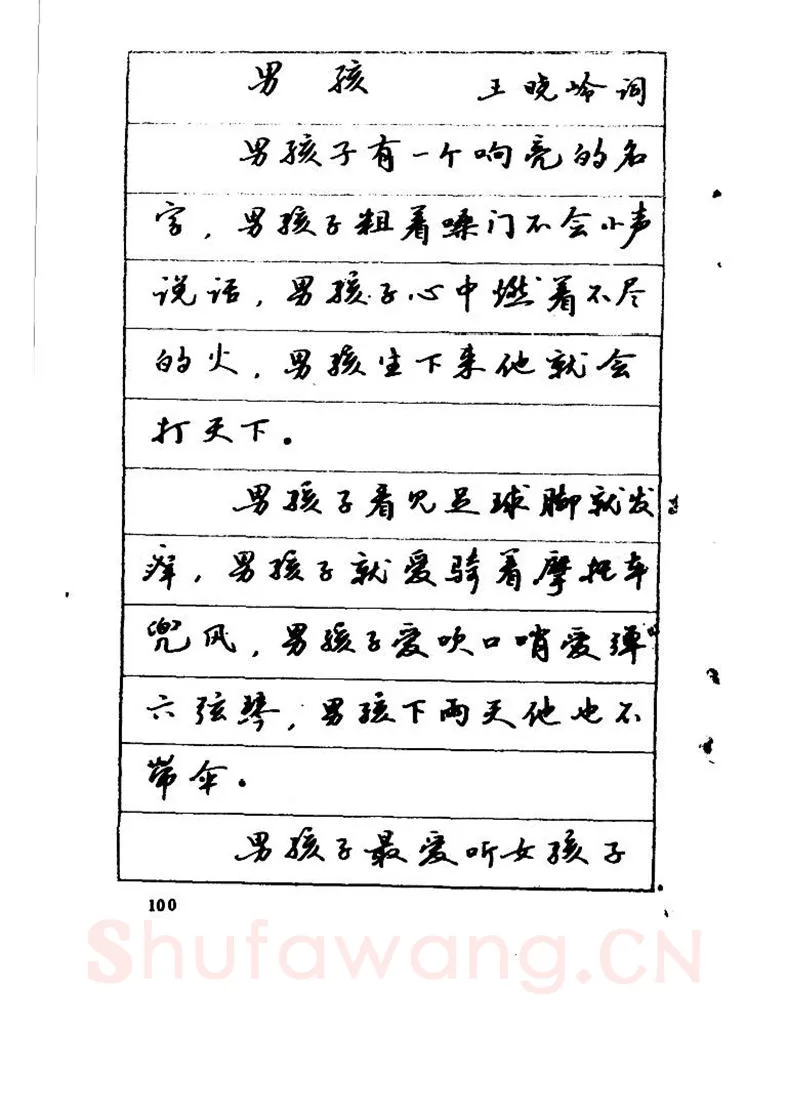 男孩 王晓岭词
男孩子有一个响亮的名
字，男孩子粗着嗓门不会小声
说话，男孩子心中燃着不尽
的火，男孩生下来他就会
打天下。
男孩子看见足球脚就发
痒，男孩子就爱骑着摩托车
兜风，男孩子爱吹口哨爱弹
六弦琴，男孩下雨天他也不
带伞。
男孩子最爱听女孩子
100
Shufawang.CN